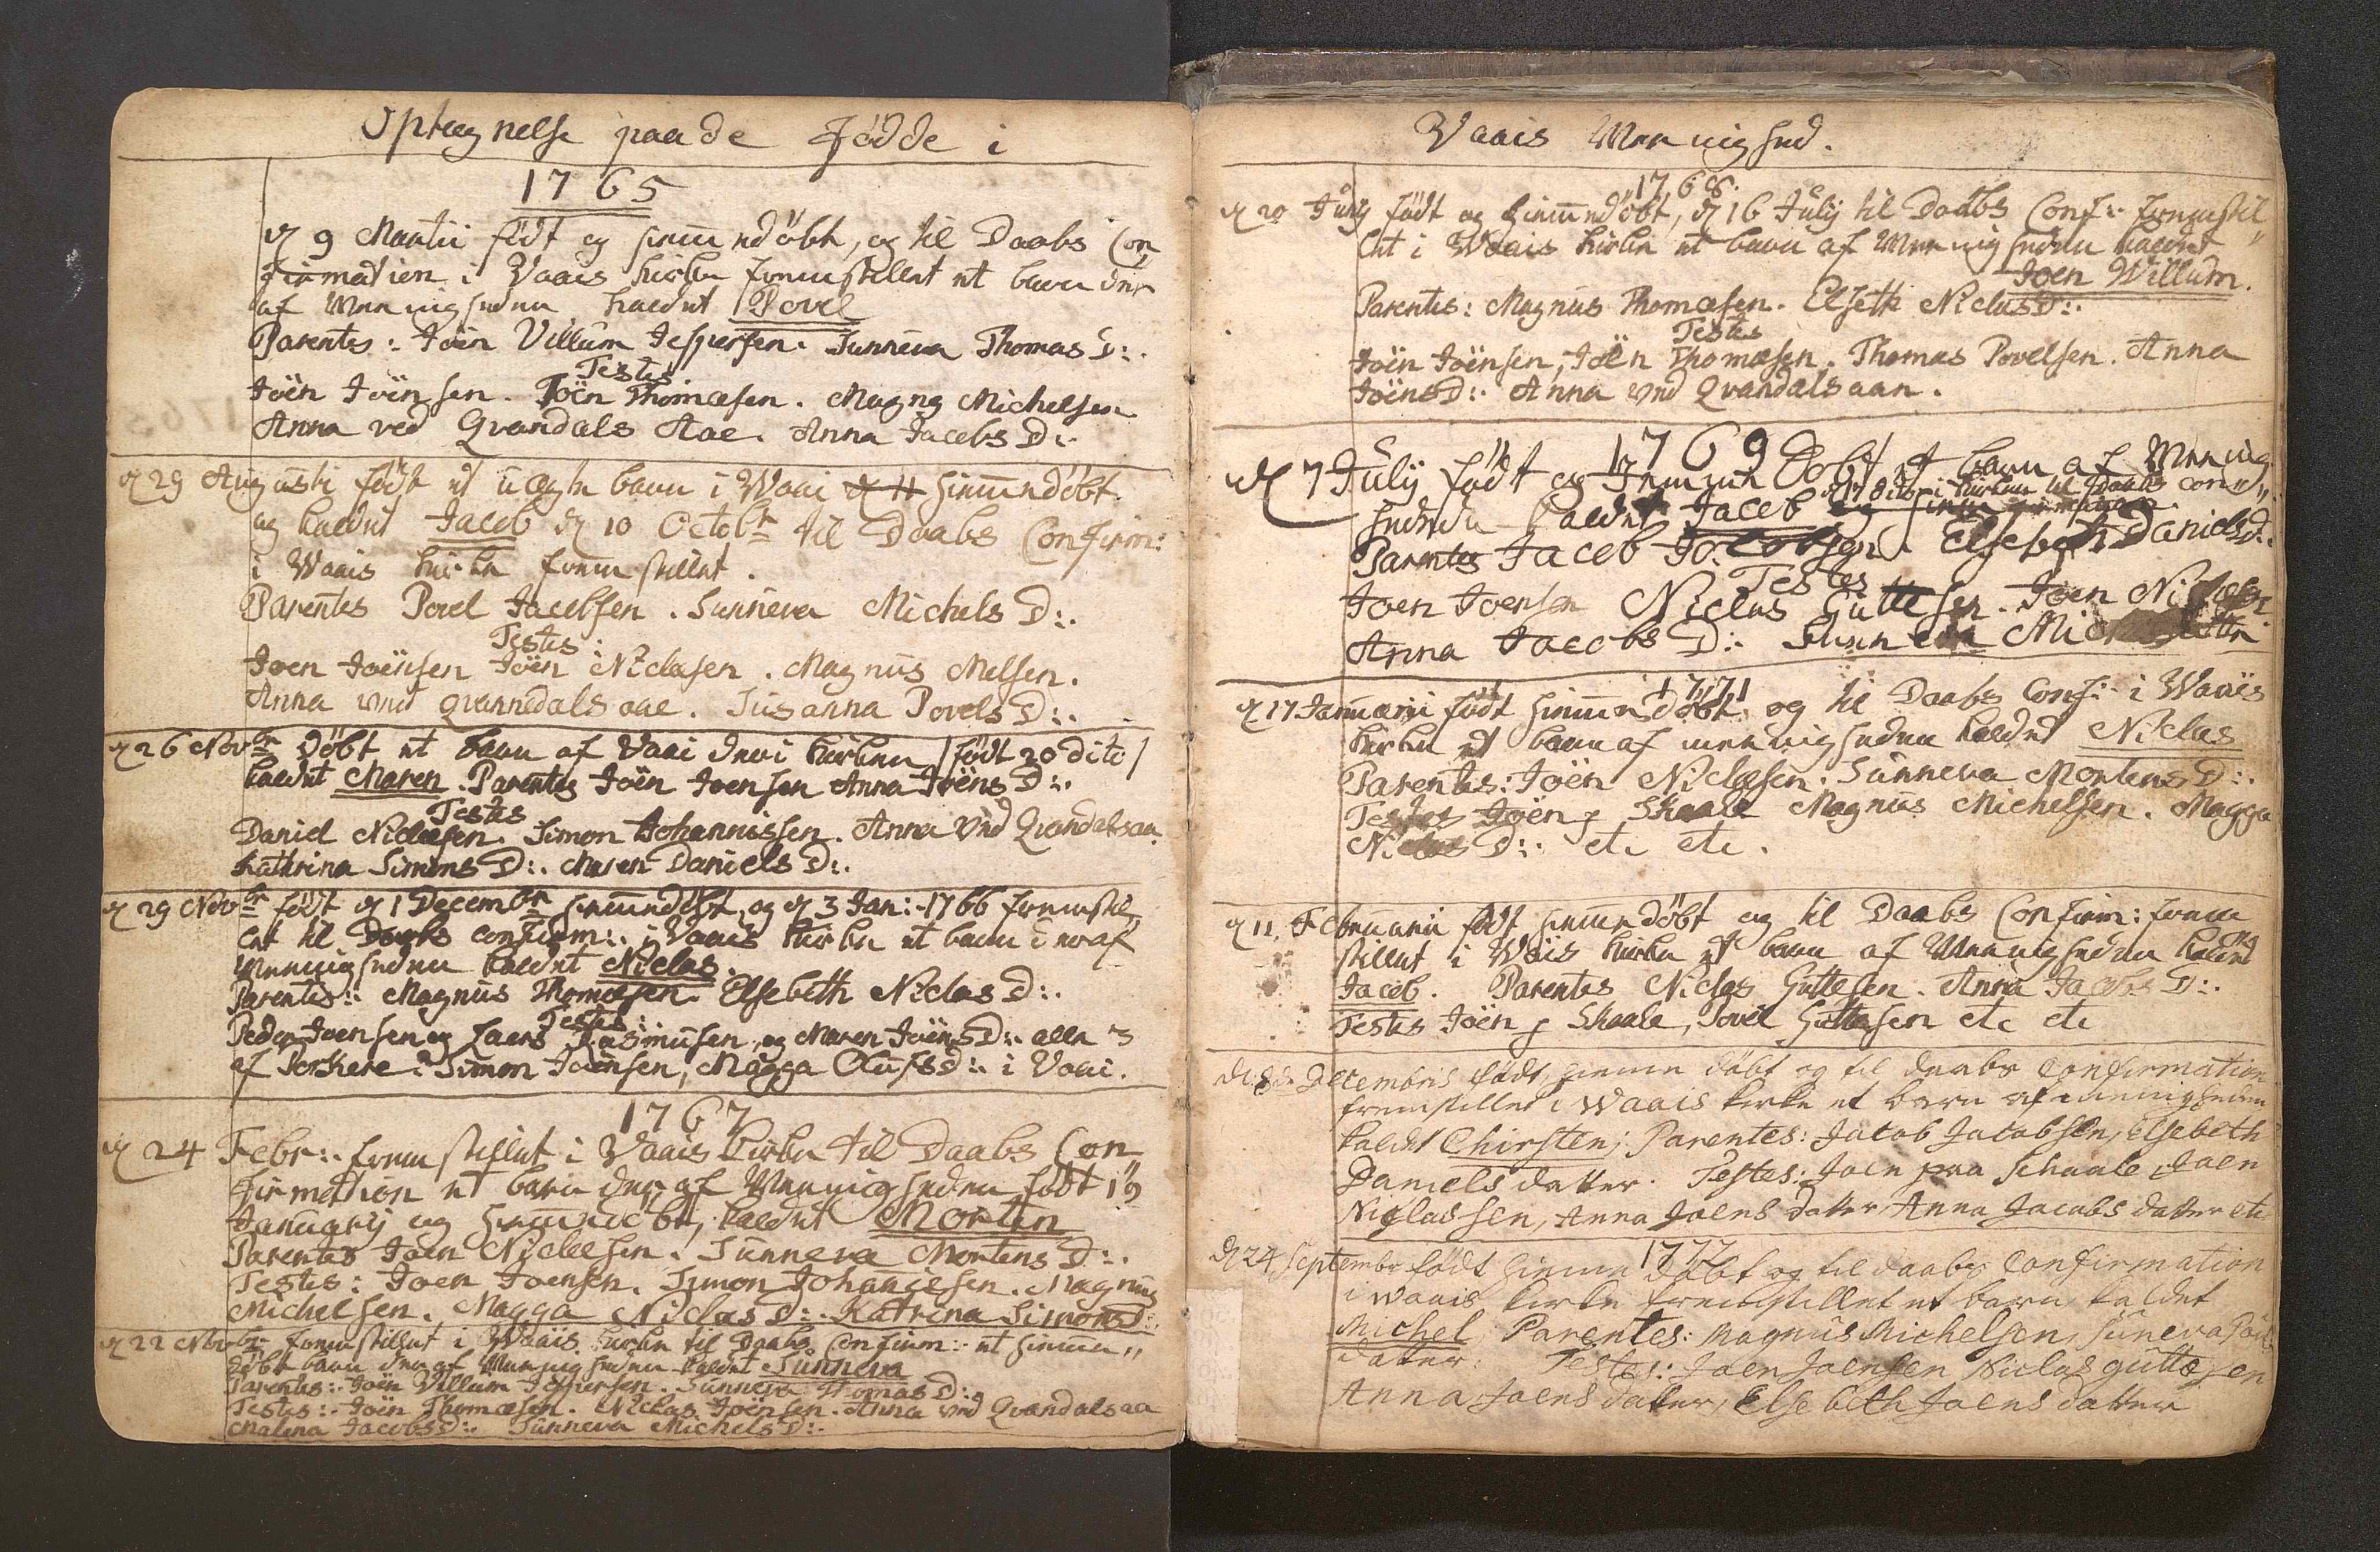 Optegnelse paa de Fødde i
1765
d 9 Martii födt og hiemmedöbt, og til Daabs Con
firmation i Vaais kirke fremstillet et barn der
af Meenigheden kaldet Povel
Parentes: Joen Villum Jespersen. Sunneva Thomas D:.
Testes
Joën Joënsen. Joën Thomæsen. Magng Michelsen
Anna ved Qvandals Aae. Anna Jacobs D:.
d 29 Augusti födt et uægte barn i Waai d 11 hiemmedöbt.
og kaldet Jacob d 10 Octobr til Daabs Confirm:
i Waais kirke fremstillet.
Parentes Povel Jacobsen. Sunneva Michels D:.
Testes:
Joen Joënsen Joën Niclasen. Magnus Melsen.
Anna ved qvannedals aae. Susanna Povels D:.
d 26 Novbr Döbt et barn af Vaai der i kirken /födt 20 dito/
kaldet Maren. Parentes Joën Joensen Anna Joëns D:.
Testes
Daniel Niclæsen. Simon Johannissen. Anna ved Qvandalsaa.
Kathrina Simons D:. Maren Daniels D:.
d 29 Novbr födt d 1 Decembr hiemmedöbt, og d 3 Jan:. 1766 fremstil
let til Daabs confirm:. i Vaais kirke et barn der af
Meenigheden kaldet Niclas.
Parentes:. Magnus Thomæsen. Elsebeth Niclas D:.
Testes:
Peder Joensen og Laers Rasmusen, og Maren Joëns D:. alle 3
af Porkere. Simon Joënsen, Magga Olufs d:. i Vaai.
1767
d 24 Febr:. fremstillet i Vaais kirke til Daabs Con
firmation et barn der af Meenigheden födt 19
Januarij og hiemmedöbt, kaldet Morten
Parentes Joen Niclæsen. Sunneva Mortens D:.
Testes: Joen Joensen. Simon Johannesen. Magnus
Michelsen. Magga Niclas D:. Katrina Simons D:.
d 22 Novbr fremstillet i Waais kirke til Daabs Confirm:. et hiemme"
döbt barn der af Meenigheden kaldet Sunneva
Parentes:. Joën Villum Jespersen. Sunneva Thomas D:.
Testes:. Joën Thomæsen. Niclas Joënsen. Anna ved Qvandalsaa
Malena Jacobs D:. Sunneva Michels D:.
Vaais Meenighed.
1768.
d 20 July födt og hiemmedöbt, d 16 July til Daabs Conf:. fremstil"
let i Waais kirke et barn af Meenigheden kaldet
Joen Willum.
Parentes: Magnus Thomæsen. Elseth Niclas D:.
Testes
Joën Joënsen, Joën Thomæsen. Thomas Povelsen. Anna
Joëns D:. Anna ved Qvandalsaan.
1769
d 7 July födt og Döbt et barn af Meenig
d 17 dito i kirken til Daabs con"
heden kaldet Jacob
Parentes Jacob Jacobsen. Elsebeth Daniels D:.
Testes
Joen Joensen Niclas Guttesen. Joen
Anna Jacobs D:. Sunneva
1771
d 17 Januarii födt hiemmedöbt, og til Daabs Conf:. i Waais
kirke et barn af meenigheden kaldet Niclas
Parentes: Joën Niclæsen. Sunneva Mortens D:.
Testes Joën p Skaale Magnus Michelsen. Magga
Niclas D:. etc etc.
d 11 Februarii födt hiemmedöbt og til Daabs Confirm: frem
stillet i Wais kirke et barn af Meenigheden kaldet
Jacob. Parentes Niclas Guttesen. Anna Jacobs D:.
Testes Joën p Skaale, Povel Guttesen etc etc
Decembris födt hiemme döbt og til daabs Confirmation
fremstillet i Waais kirke et barn af meenigheden
kaldet Chirsten; Parentes: Jacob Jacobsen, Elsebeth
Daniels datter. Testes: Joen paa Schaale, Joen
Niclassen, Anna Joens datter, Anna Jacobs datter etc
1772
d 24 Septembr födt hiemme döbt og til daabs Confirmation
i waais kirke fremstillet et barn kaldet
Michel Parentes: Magnus Michelsen, Suneva
datter. Testes: Joen Joensen Niclas guttesen
Anna Joens datter, Elsebeth Joens datter